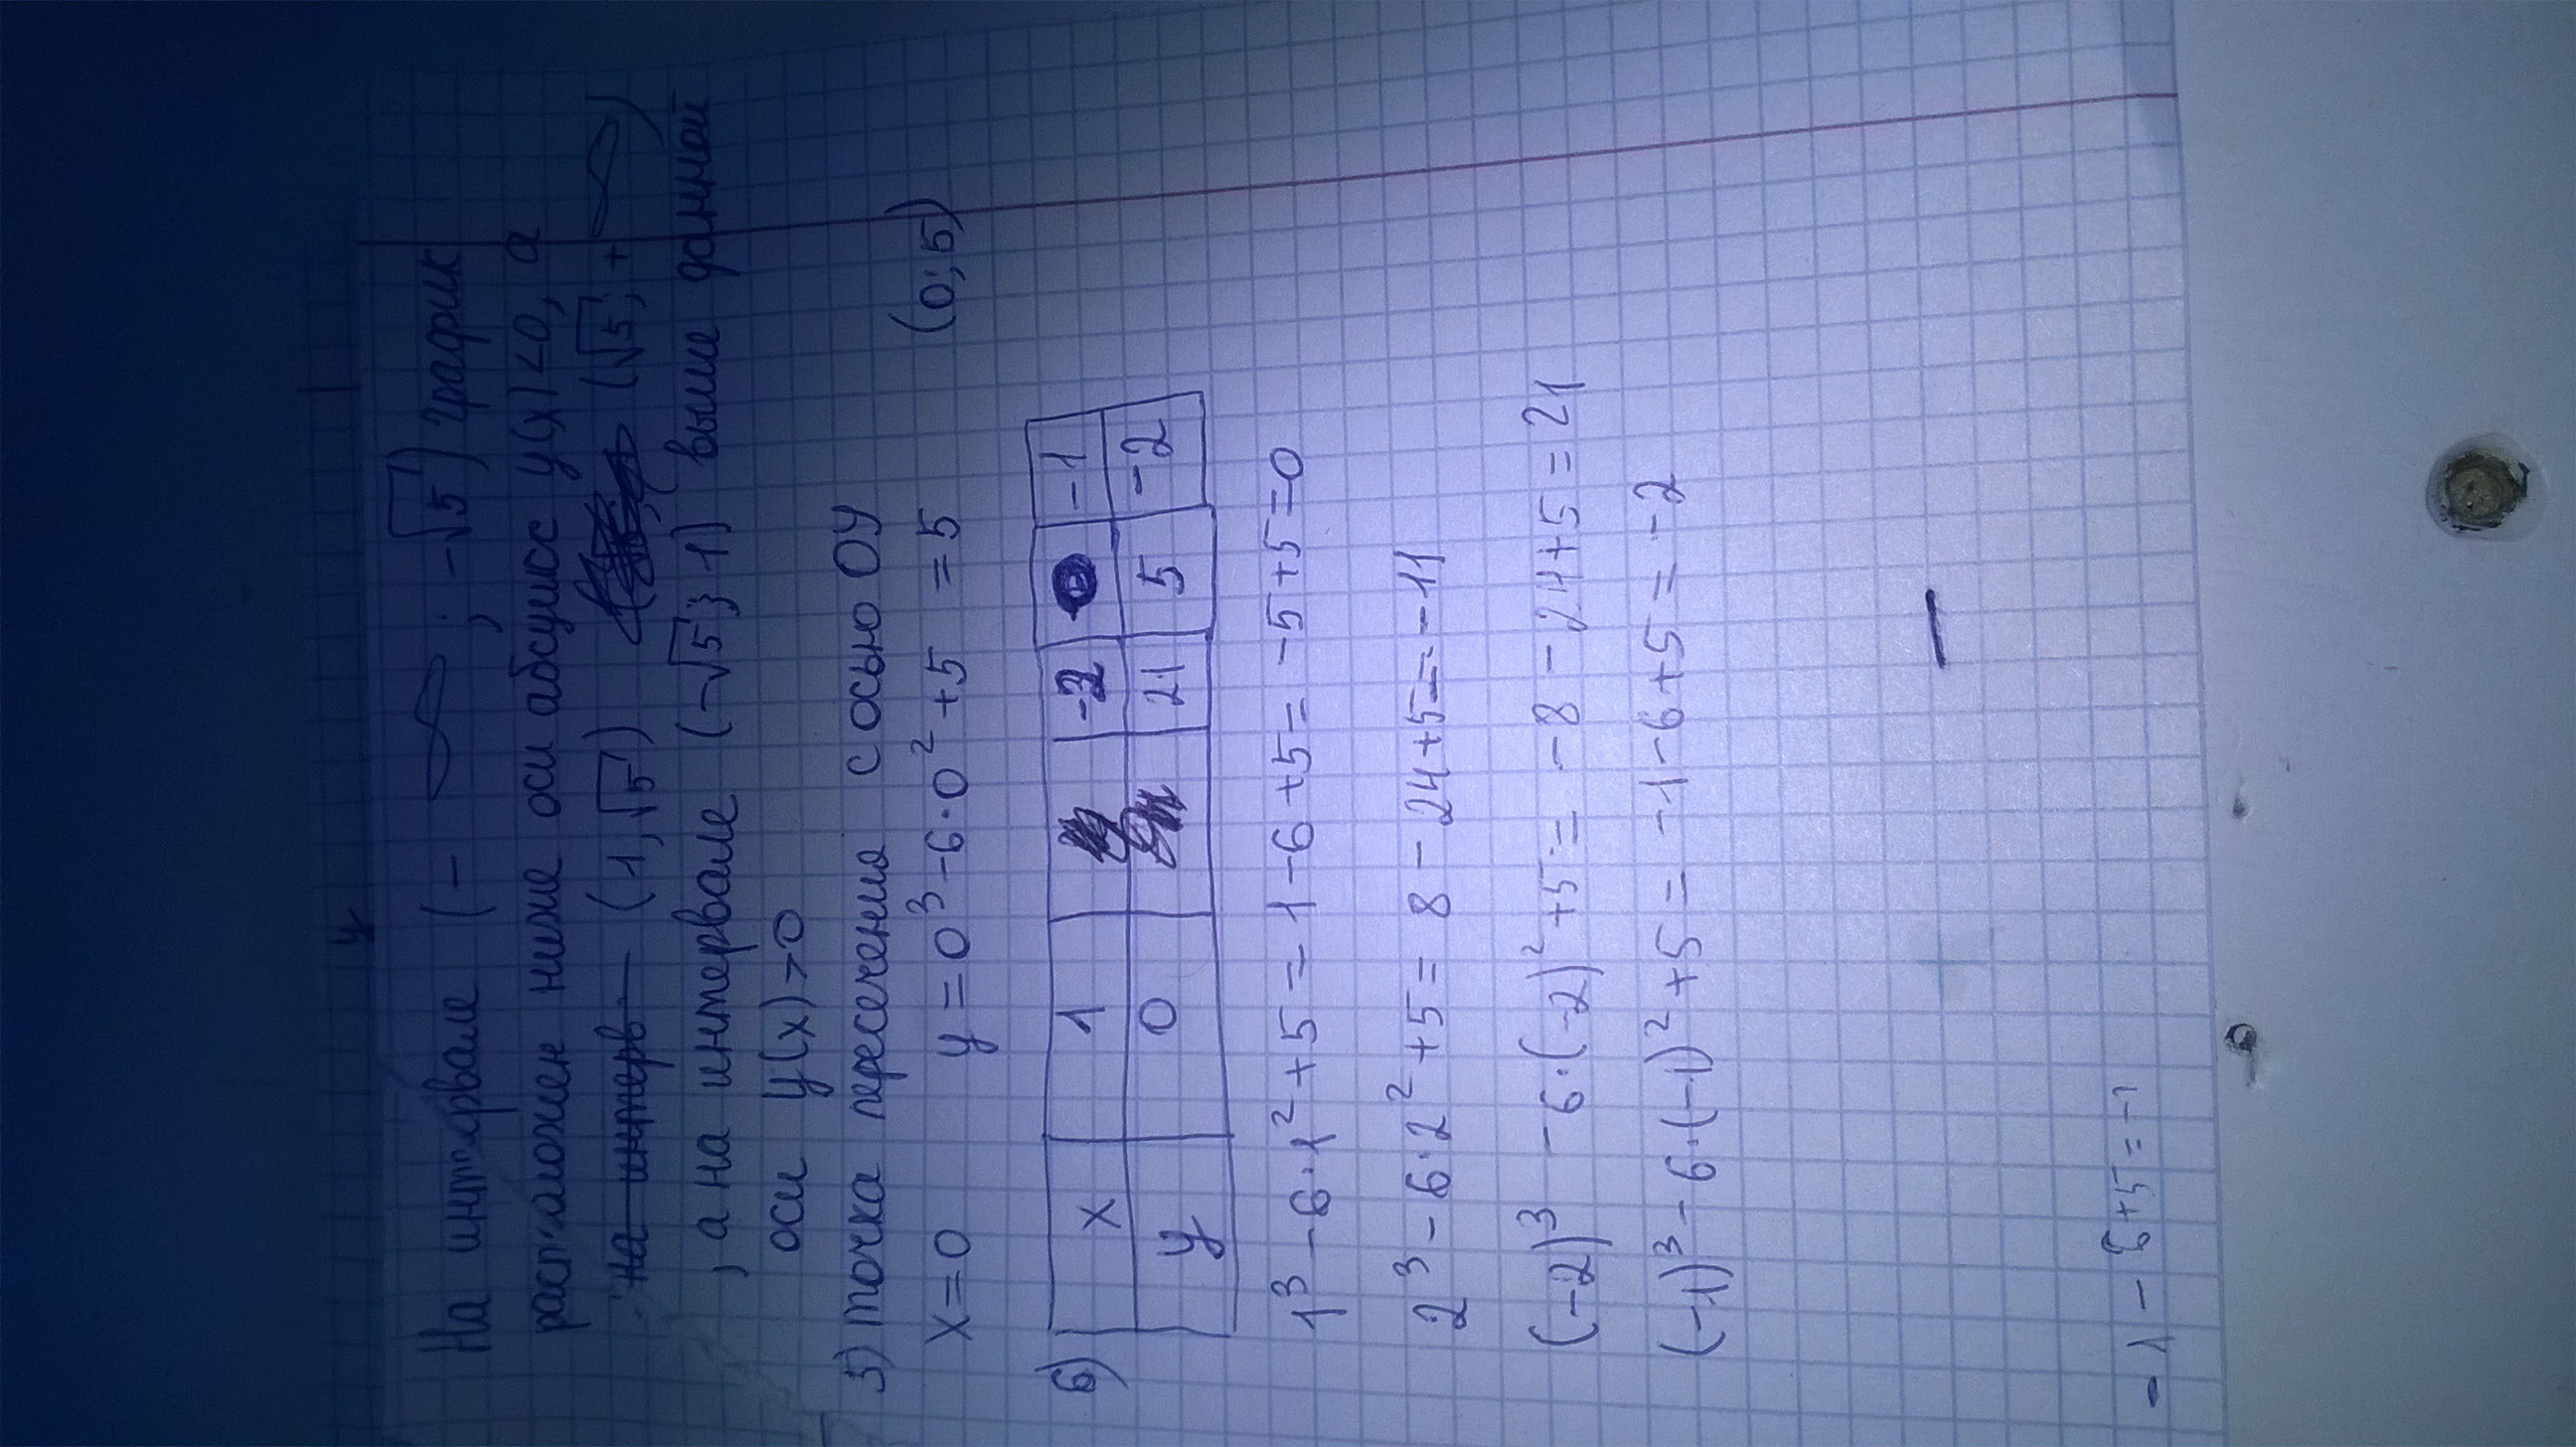 y
На интервале (-∞; -√5) график
расположен ниже оси абсцисс y(x)<0, а
на интерв (1,√5) (√5; +∞)
, а на интервале (-√5; 1) выше данной
оси y(x)>0
5) точка пересечения с осью OY
x=0 y=0³-6·0²+5=5 (0;5)
6) x 1 -2 0 -1
y 0 21 5 -2
1³-6·1²+5=1-6+5=-5+5=0
2³-6·2²+5=8-24+5=-11
(-2)³-6·(-2)²+5=-8-24+5=21
(-1)³-6·(-1)²+5=-1-6+5=-2
-1-6+5=-1